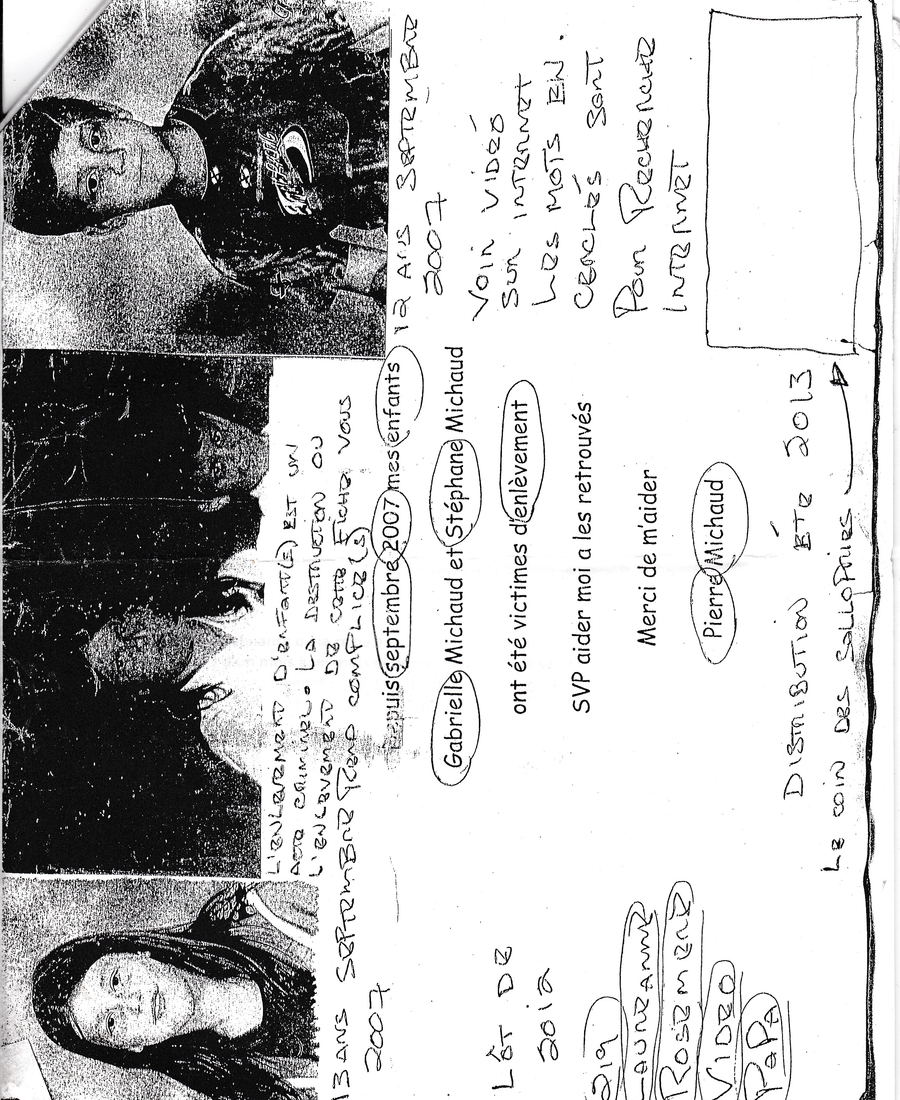 13 ANS SEPTEMBRE
2007
L'ENLEVEMENT D'ENFANT(S) EST UN
ACTE CRIMINEL. LA DESTRUCTION OU
L'ENLEVEMENT DE CETTE FICHE VOUS
REND COMPLICE(S)
12 ANS SEPTEMBRE
2007
Depuis septembre 2007 mes enfants
Gabrielle Michaud et Stéphane Michaud
ont été victimes d'enlèvement
SVP aider moi a les retrouvés
Merci de m'aider
Pierre Michaud
VOIR VIDÉO
SUR INTERNET
LES MOTS EN.
CERCLÉS SONT
POUR RECHERCHE
INTERNET
LÔT DE
2012
219
LAUREANNE
ROSEMERE
VIDEO
PAPA
DISTRIBUTION ÉTE 2013
LE COIN DES